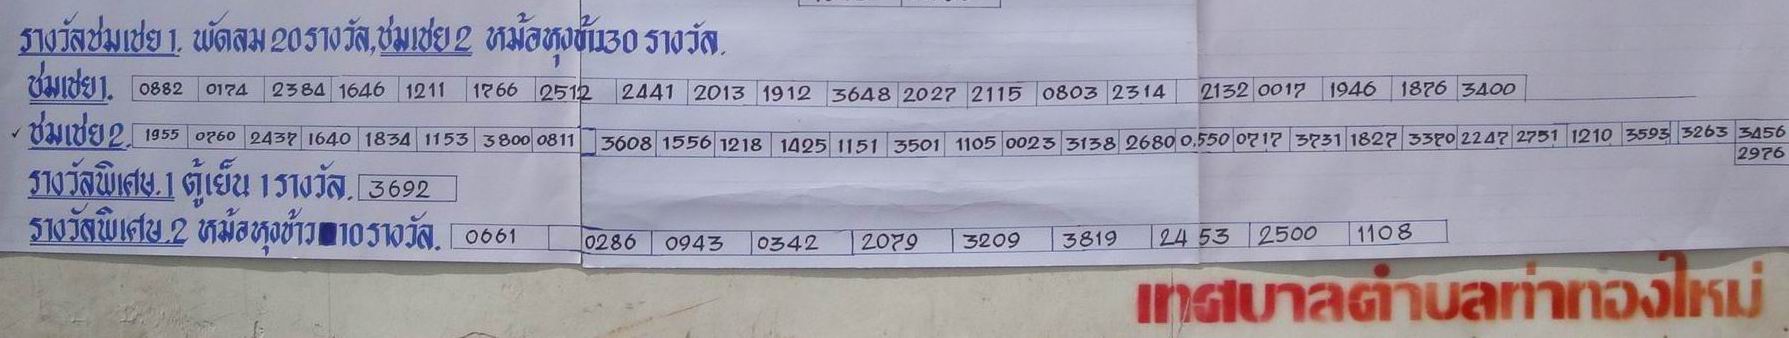 รางวัลชมเชย 1. พัดลม 20 รางวัล, ชมเชย 2 หม้อหุงข้าว 30 รางวัล.
ชมเชย 1. 0882 0174 2384 1646 1211 1766 2512 2441 2013 1912 3648 2027 2115 0803 2314 2132 0017 1946 1876 3400
✓ ชมเชย 2. 1955 0760 2437 1640 1834 1153 3800 0811 3608 1556 1218 1425 1151 3501 1105 0023 3138 2680 0550 0717 3731 1827 3370 2247 2751 1210 3593 3263 3456
2976
รางวัลพิเศษ.1 ตู้เย็น 1 รางวัล. 3692
รางวัลพิเศษ.2 หม้อหุงข้าว 10 รางวัล. 0661 0286 0943 0342 2079 3209 3819 2453 2500 1108
เทศบาลตำบลท่าทองใหม่